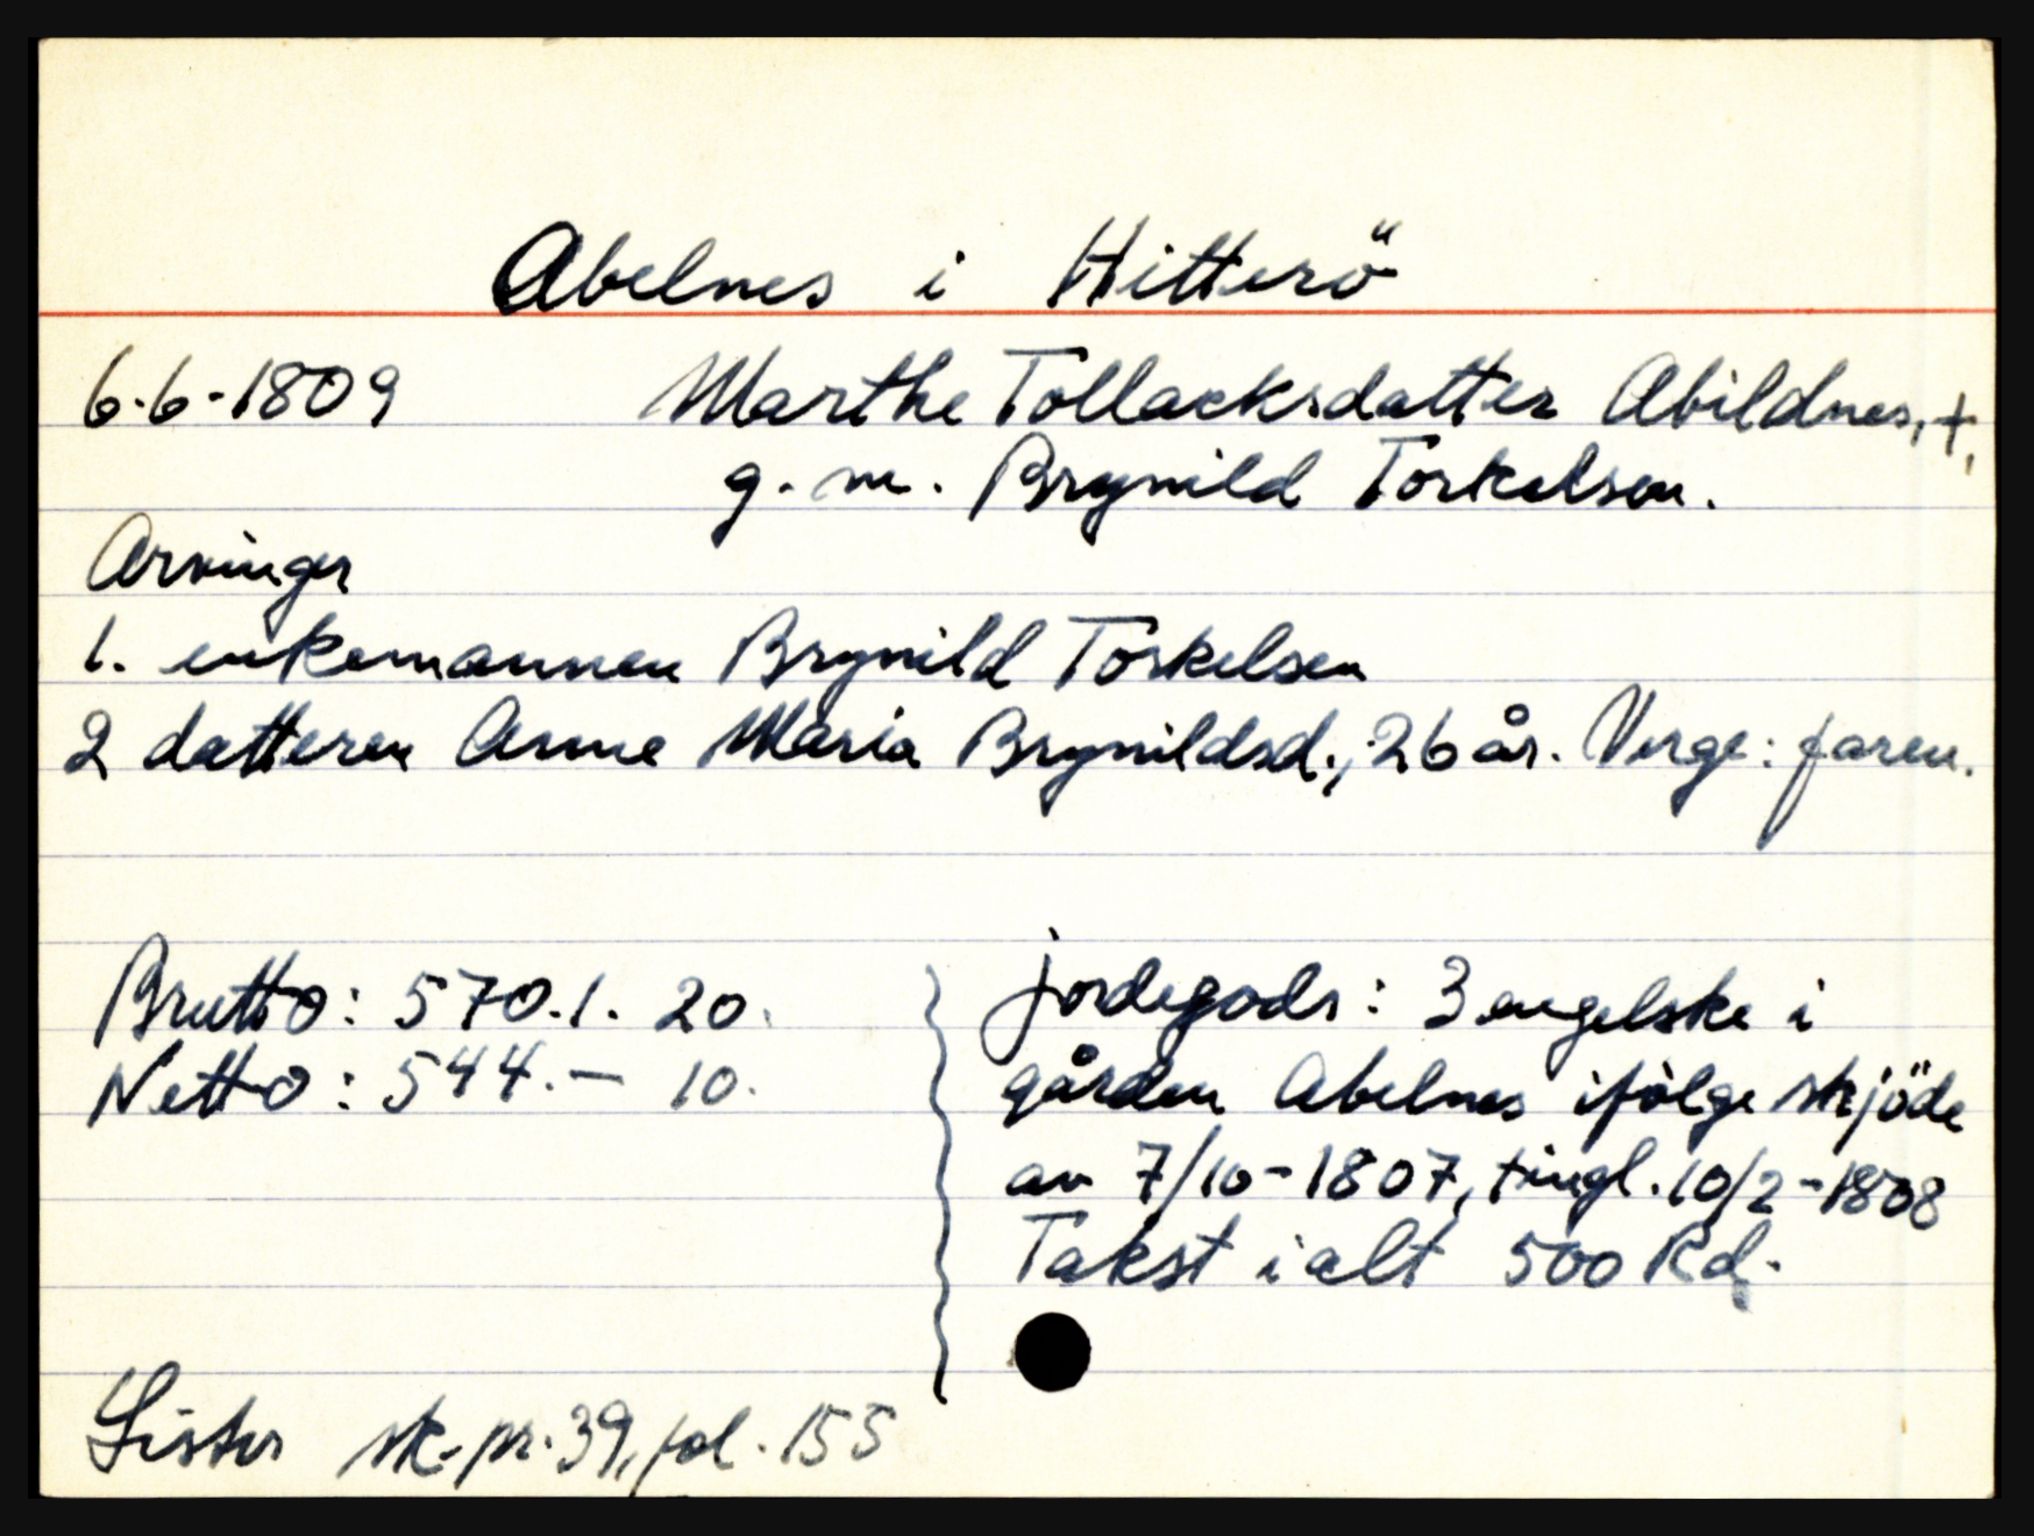 Abelnes i Hitterö
6.6-1809 Marthe Tollacksdatter Abildnes, +,
g. m. Brynild Torkelsen.
Arvinger
1. enkemannen Brynild Torkelsen
2 datteren Anne Maria Brynildsd., 26 år. Verge: faren.
Brutto: 570.1. 20.
Netto: 544.— 10.
jordegods: 3 engelske i
gården Abelnes ifölge skjöde
av 7/10-1807, tingl. 10/2-1808
Takst ialt 500 Rd.
Lister sk. pr. 39, fol. 155